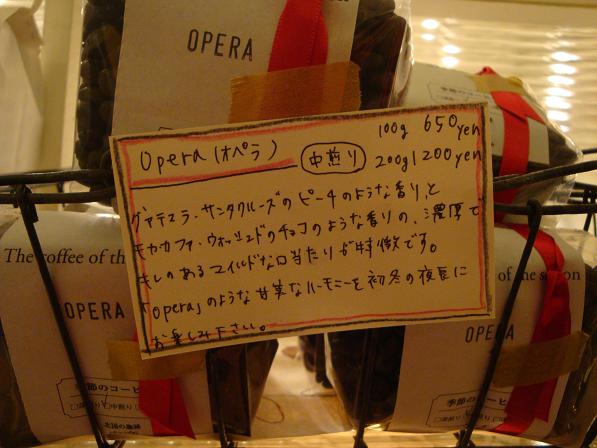 OPERA
Opera (オペラ)
中煎り
100g 650yen
200g 1200yen
グァテマラ・サンタクルーズのピーチのような香りと
モカ・カファ・ウォッシュドのチョコのような香りの、濃厚で
キレのあるマイルドな口当たりが特徴です。
「opera」のような甘美なハーモニーを初冬の夜長に
お楽しみ下さい。
The coffee of th
OPERA
季節のコーヒ
中煎り
北国の珈琲
of the season
OPERA
季節のコーヒ